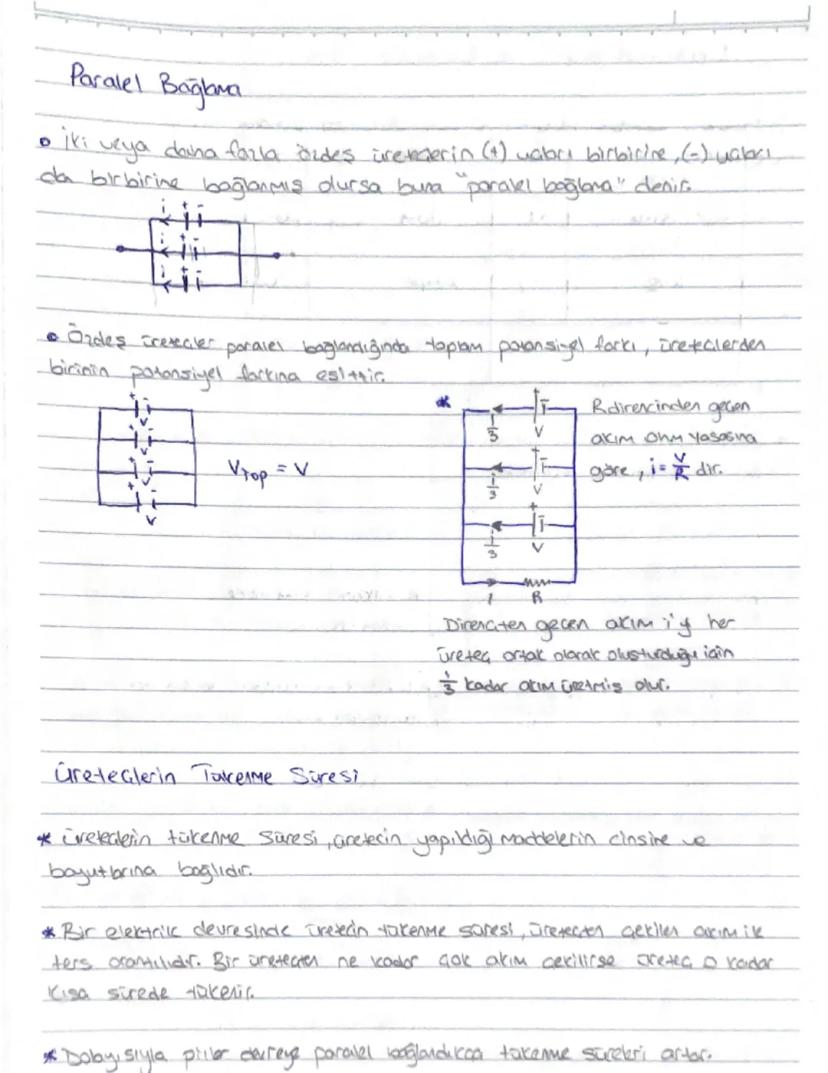 Paralel Bağlama
• İki veya daha fazla özdeş üreteçlerin (+) uçları birbirine, (-) uçları
da birbirine bağlanmış olursa buna "paralel bağlama" denir.
i + -
i + -
i + -
• Özdeş üreteçler paralel bağlandığında toplam potansiyel farkı, üreteçlerden
birinin potansiyel farkına eşittir.
+ - V
+ - V
+ - V
+ - V
V_Top = V
* R direncinden geçen
akım ohm yasasına
göre, i = V/R dir.
i/3 + - V
i/3 + - V
i/3 + - V
i R
Dirençten geçen akım i'y her
üreteç ortak olarak oluşturduğu için
i/3 kadar akım üretmiş olur.
Üreteçlerin Tükenme Süresi
* Üreteçlerin tükenme süresi, üretecin yapıldığı maddelerin cinsine ve
boyutlarına bağlıdır.
* Bir elektrik devresinde üretecin tükenme süresi, üreteçten çekilen akım ile
ters orantılıdır. Bir üreteçten ne kadar çok akım çekilirse üreteç o kadar
kısa sürede tükenir.
* Dolayısıyla piller devreye paralel bağlandıkça tükenme süreleri artar.